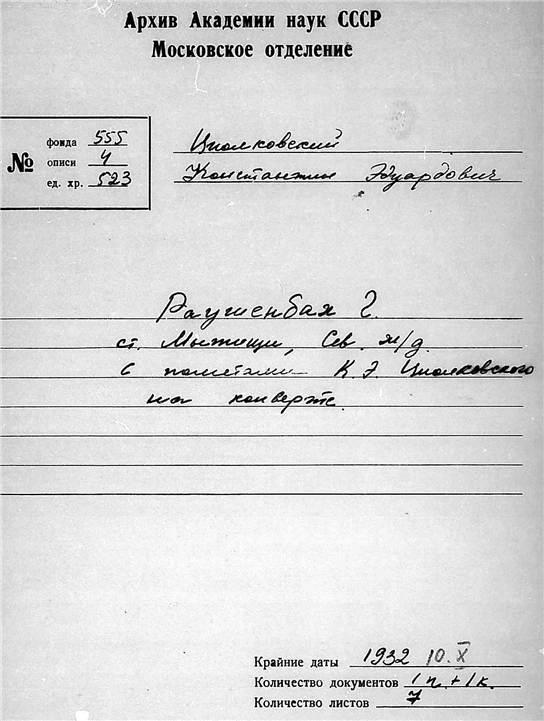 Архив Академии наук СССР
Московское отделение
№
фонда 555
описи 4
ед. хр. 523
Циолковский
Константин Эдуардович
Раушенбах Г.
ст. Мытищи, Сев. ж/д.
с пометами К.Э. Циолковского
на конверте.
Крайние даты 1932 10.X
Количество документов 1п.+1к.
Количество листов 7